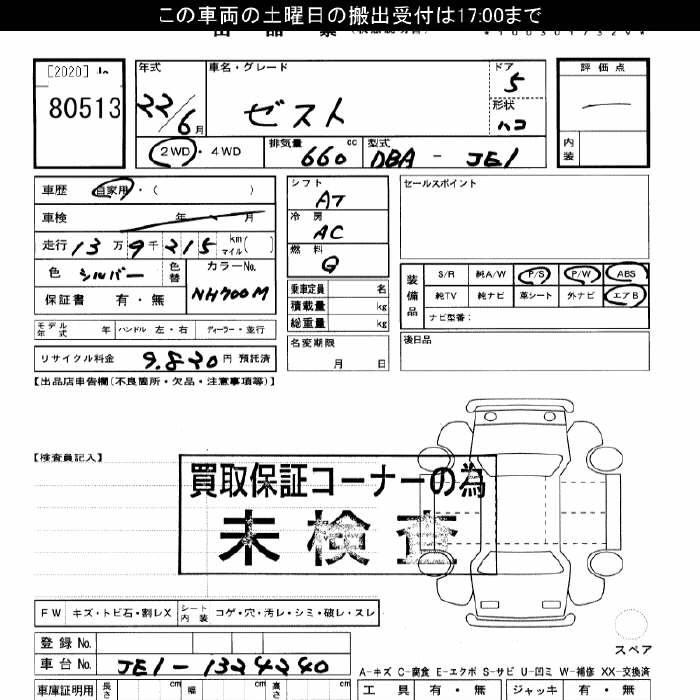 この車両の土曜日の搬出受付は17:00まで
[2020]
80513
年式 22/6月
車名・グレード ゼスト
ドア 5
形状 ハコ
評価点
内装
2WD・4WD
排気量 660 cc
型式 DBA - JE1
車歴 自家用・( )
車検 年 月
走行 13万9千215 km マイル( )
色 シルバー 色替
カラーNo. NH700M
保証書 有・無
モデル年式 年 ハンドル 左・右 ディーラー・並行
リサイクル料金 9.820円 預託済
シフト AT
冷房 AC
燃料 G
乗車定員 名
積載量 kg
総重量 kg
名変期限 月 日
セールスポイント
装備品
S/R 純A/W P/S P/W ABS
純TV 純ナビ 革シート 外ナビ エアB
ナビ型番:
後日品
【出品店申告欄(不良箇所・欠品・注意事項等)】
【検査員記入】
買取保証コーナーの為
未検査
FW キズ・トビ石・割レX シート内装 コゲ・穴・汚レ・シミ・破レ・スレ
スペア
登録No.
車台No. JE1-1324240
A-キズ C-腐食 E-エクボ S-サビ U-凹ミ W-補修 XX-交換済
車庫証明用 長さ cm 幅 cm 高さ cm
工具 有・無 ジャッキ 有・無